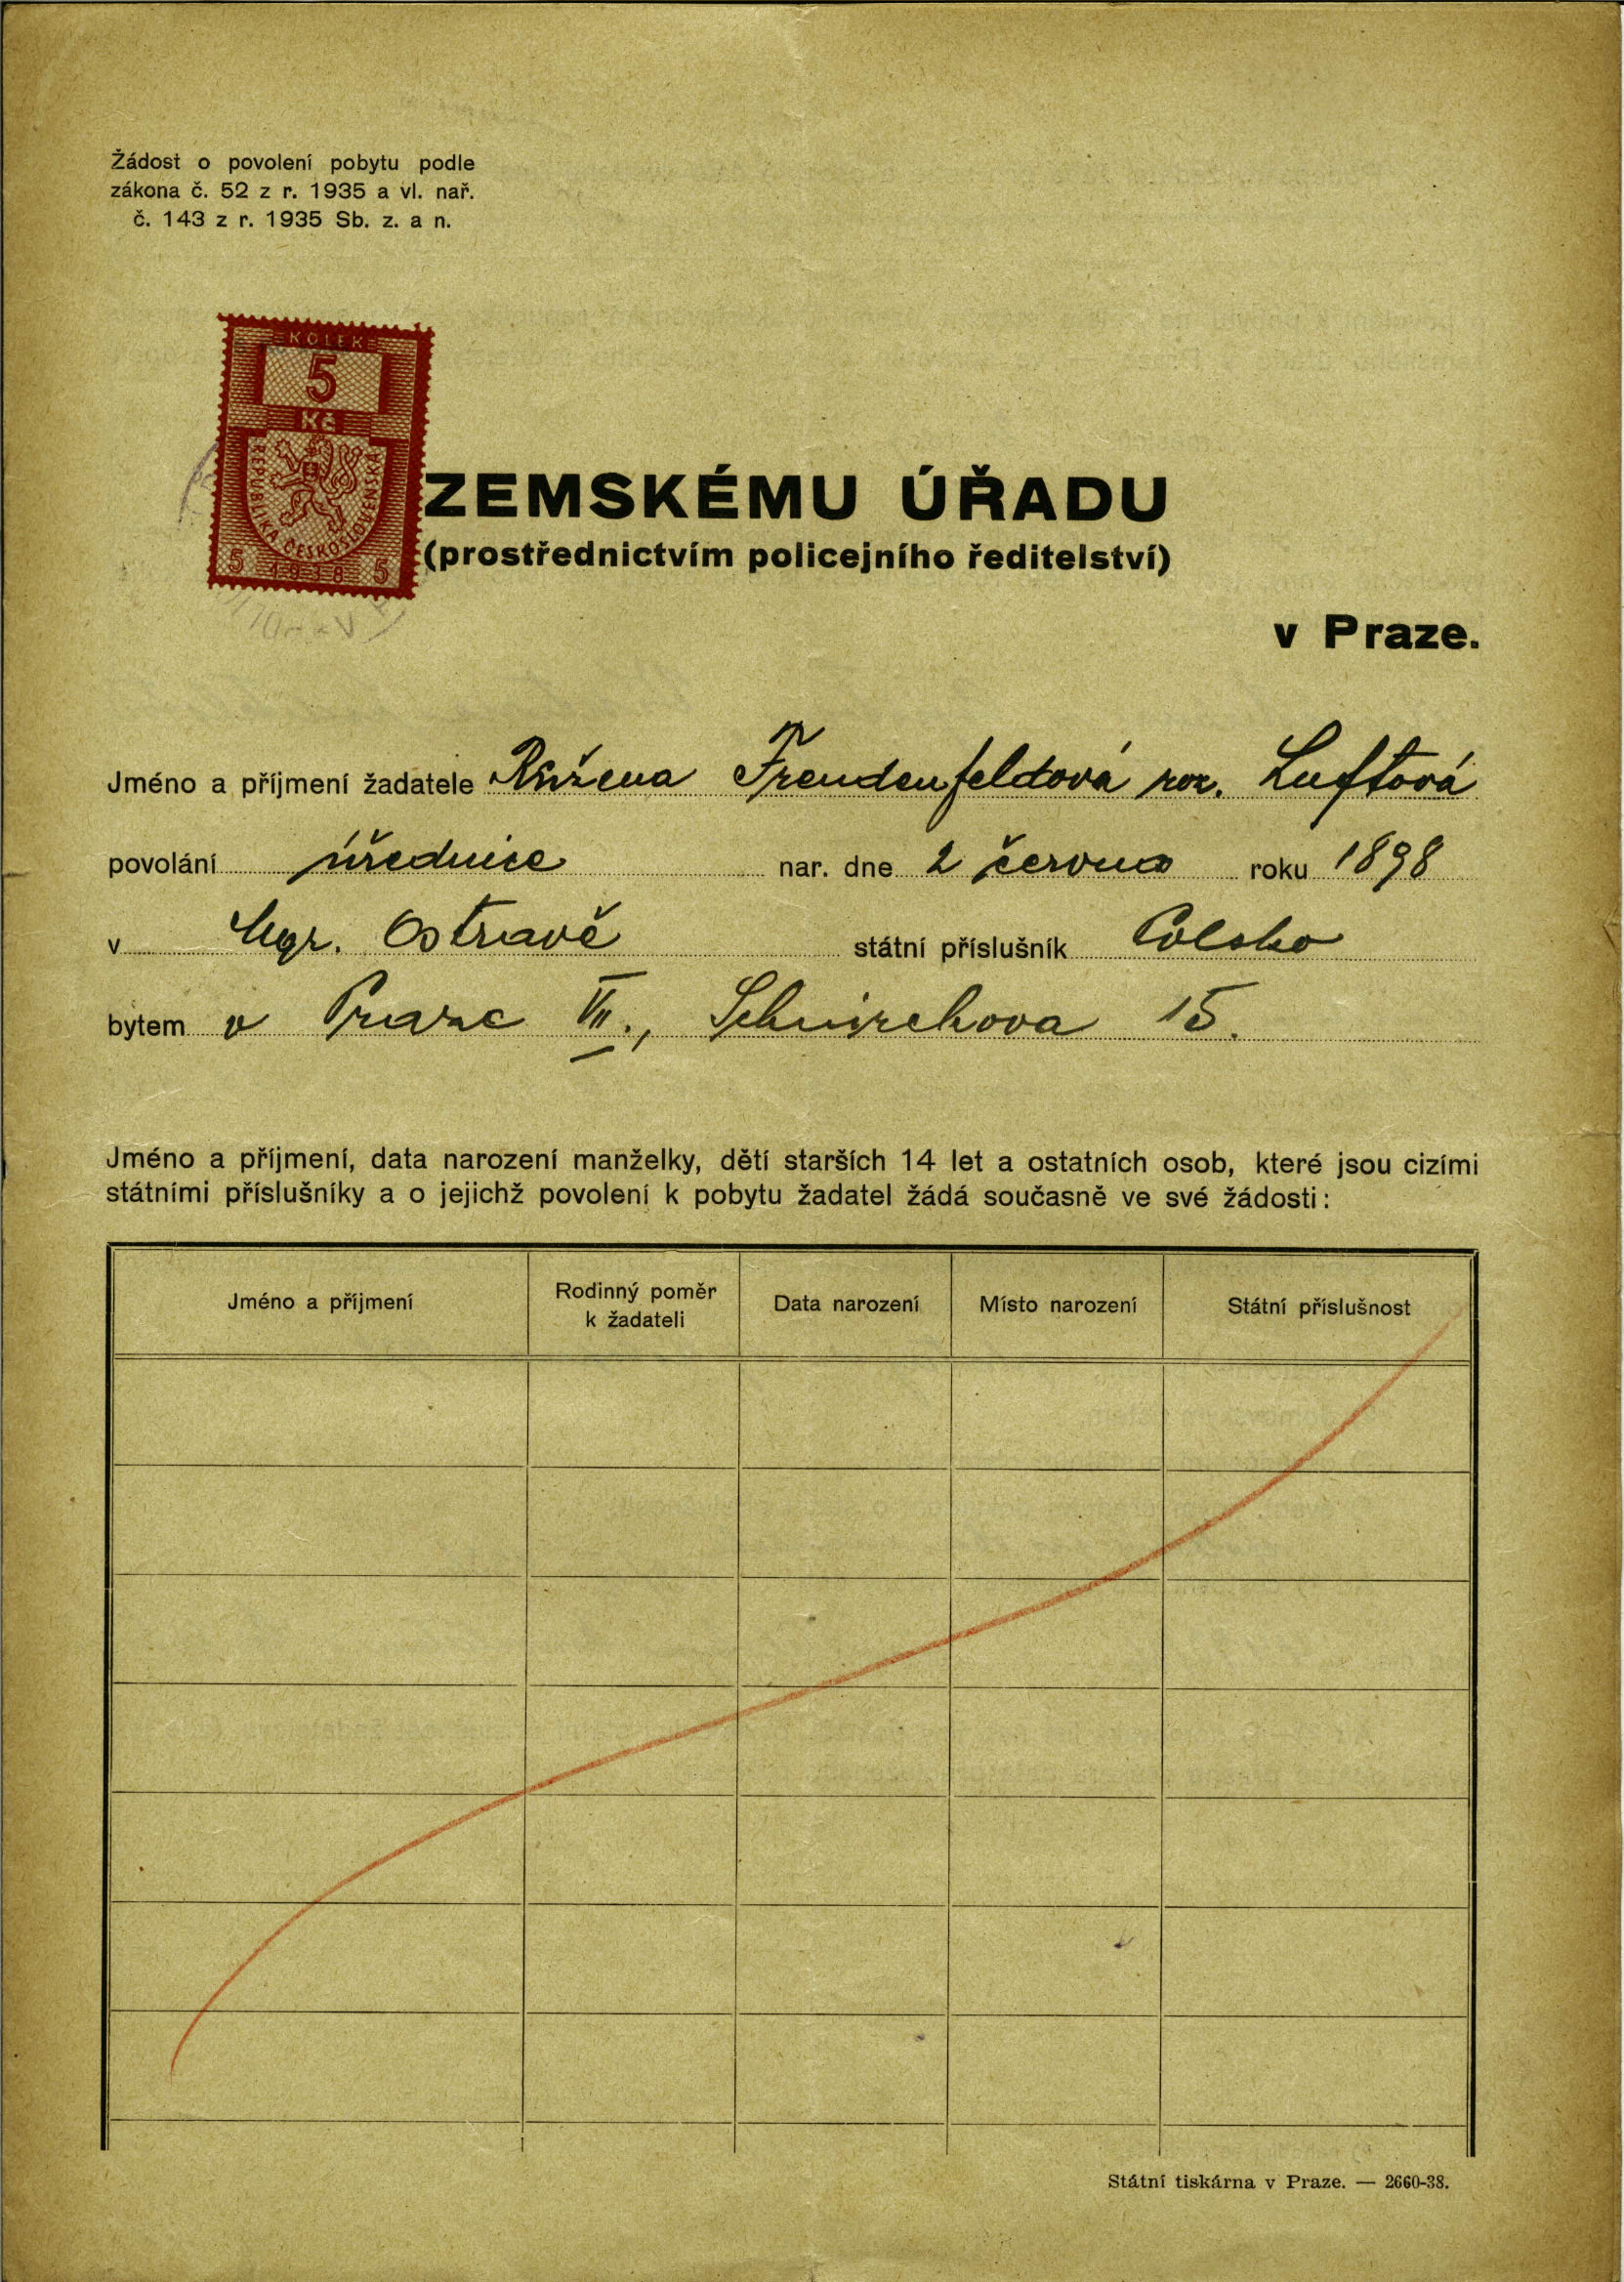 Žádost o povolení pobytu podle
zákona č. 52 z r. 1935 a vl. nař.
č. 143 z r. 1935 Sb. z. a n.
KOLEK
5
Kč
REPUBLIKA ČESKOSLOVENSKÁ
5 1938 5
ZEMSKÉMU ÚŘADU
(prostřednictvím policejního ředitelství)
v Praze.
Jméno a příjmení žadatele Růžena Freudenfeldová roz. Luftová
povolání úřednice nar. dne 2 června roku 1898
v Mor. Ostravě státní příslušník Polsko
bytem v Praze VII., Schnirchova 15.
Jméno a příjmení, data narození manželky, dětí starších 14 let a ostatních osob, které jsou cizími
státními příslušníky a o jejichž povolení k pobytu žadatel žádá současně ve své žádosti:
Jméno a příjmení
Rodinný poměr
k žadateli
Data narození
Místo narození
Státní příslušnost
Státní tiskárna v Praze. — 2660-38.